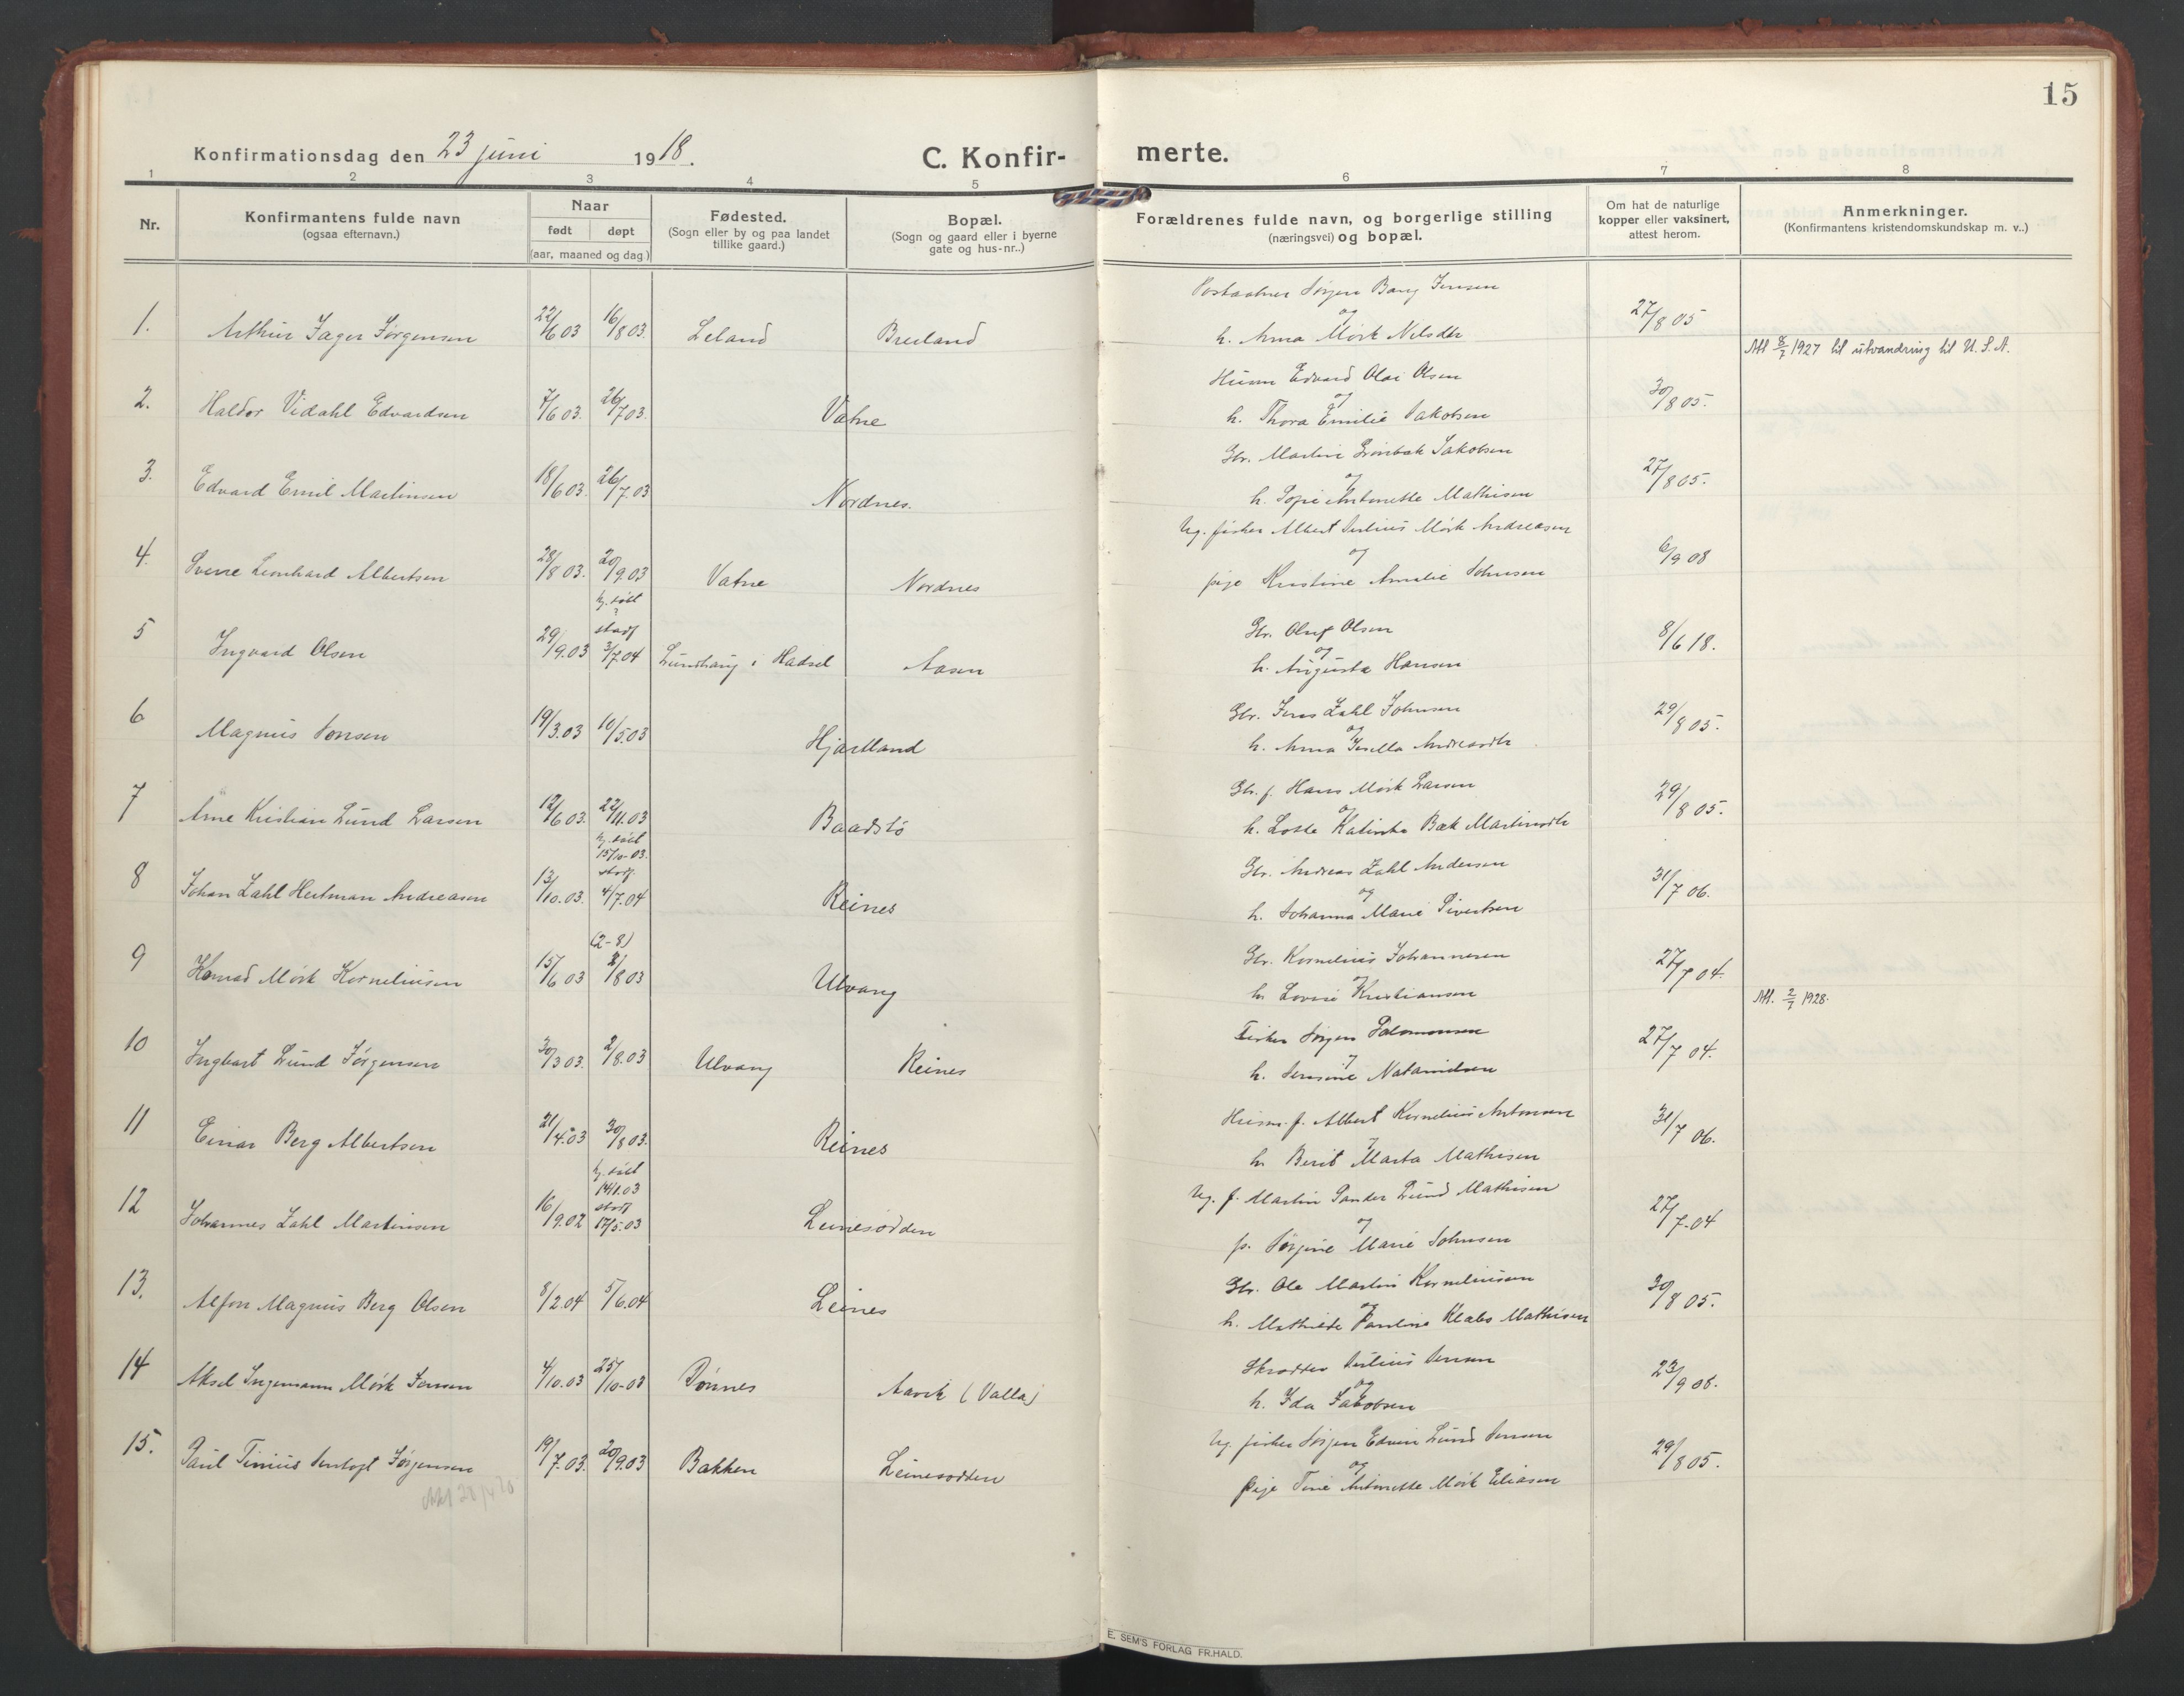 15
Konfirmationsdag den 23 juni 1918.
C. Konfir-
merte.
1 2 3 4 5 6 7 8
Nr.
Konfirmantens fulde navn
(ogsaa efternavn.)
Naar
født døpt
(aar, maaned og dag)
Fødested.
(Sogn eller by og paa landet
tillike gaard.)
Bopæl.
(Sogn og gaard eller i byerne
gate og hus-nr..)
Forældrenes fulde navn, og borgerlige stilling
(næringsvei) og bopæl.
Om hat de naturlige
kopper eller vaksinert,
attest herom.
Anmerkninger.
(Konfirmantens kristendomskundskap m. v..)
Jørgen Bang Jensen
og
1. Arthur Jager Jørgensen 22/6 03 16/8 03. Leland Breiland h. Anna Mørk Nilsdtr 27/8 05
Att 8/7 1927 til utvandring til U.S.A.
Husm Edvard Olai Olsen
og
2. Haldor Vidahl Edvardsen 7/6 03. 26/7 03. Vatne h. Thora Emilie Jakobsen 30/8 05.
Gbr. Martin Grönbæk Jakobsen
og
3. Edvard Emil Martinsen 18/6 03. 26/7 03 Nordnes. h. Sofie Antonette Mathisen 27/8 05.
Ug. fisker Albert Julius Mørk Andreasen
og
4. Sverre Leonhard Albertsen 28/8 03. 20/9 03 Vatne Nordnes pige Kristine Amalie Johnsen 6/9 08
hj. døbt
?
stadf
Gbr. Oluf Olsen
og
5 Ingvard Olsen 29/9.03 3/7.04 Lundhaug i Hadsel Aasen h. Augusta Hansen 8/6 18.
Gbr. Jens Zahl Johnsen
og
6 Magnus Jensen 19/3.03 10/5.03 Hjartland h. Anna Jesella Andreasdtr 29/8 05.
Gbr. f. Hans Mørk Larsen
og
7 Arne Kristian Lund Larsen 12/6 03. 22/11.03 Baadstø h. Lotte Katinka Bæk Martinsdtr 29/8 05.
hj. døbt
15/10-03.
stadf.
Gbr. Andreas Zahl Andersen
og
8 Johan Zahl Hertman Andreasen 13/10.03. 4/7.04 Reines h. Johanna Marie Sivertsen 31/7 06.
(2-8)
Gbr. Kornelius Johannesen
og
9 Konrad Mørk Korneliusen 15/6 03 2/8 03 Ulvang h. Lovise Kristiansen 27/7 04.
Att. 2/7 1928.
Fisker Jørgen Salomonsen
og
10 Ingbart Lund Jørgensen 30/3 03. 2/8.03 Ulvang Reines h. Jensine Natanielsen 27/7 04.
Husm. f. Albert Kornelius Antonsen
og
11 Einar Berg Albertsen 21/4.03 30/8 03. Reines h. Berit Marta Mathisen 31/7 06.
hj. døbt
14/1.03
stadf
Ug. f. Martin Sander Lund Mathisen
og
12 Johannes Zahl Martinsen 16/9.02 17/5.03 Leinesodden p. Jørgine Marie Johnsen 27/7.04
Gbr. Ole Martin Korneliusen
og
13. Alfon Magnus Berg Olsen 8/2.04 5/6.04 Leines h. Mathilde Pauline Klæbo Mathisen 30/8 05.
Skrædder Julius Jensen
og
14 Aksel Ingemann Mørk Jensen 4/10.03 25/10-03 Dønnes Aavik (Valla) h. Ida Jakobsen 23/9 08.
Ug. fisker Jørgen Edvin Lund Jensen
og
15. Paul Tinius Jentoft Jørgensen 19/7.03. 20/9.03 Bakken Leinesodden pige Tine Antonette Mørk Eliasen 29/8 05.
E. SEM'S FORLAG FR.HALD.